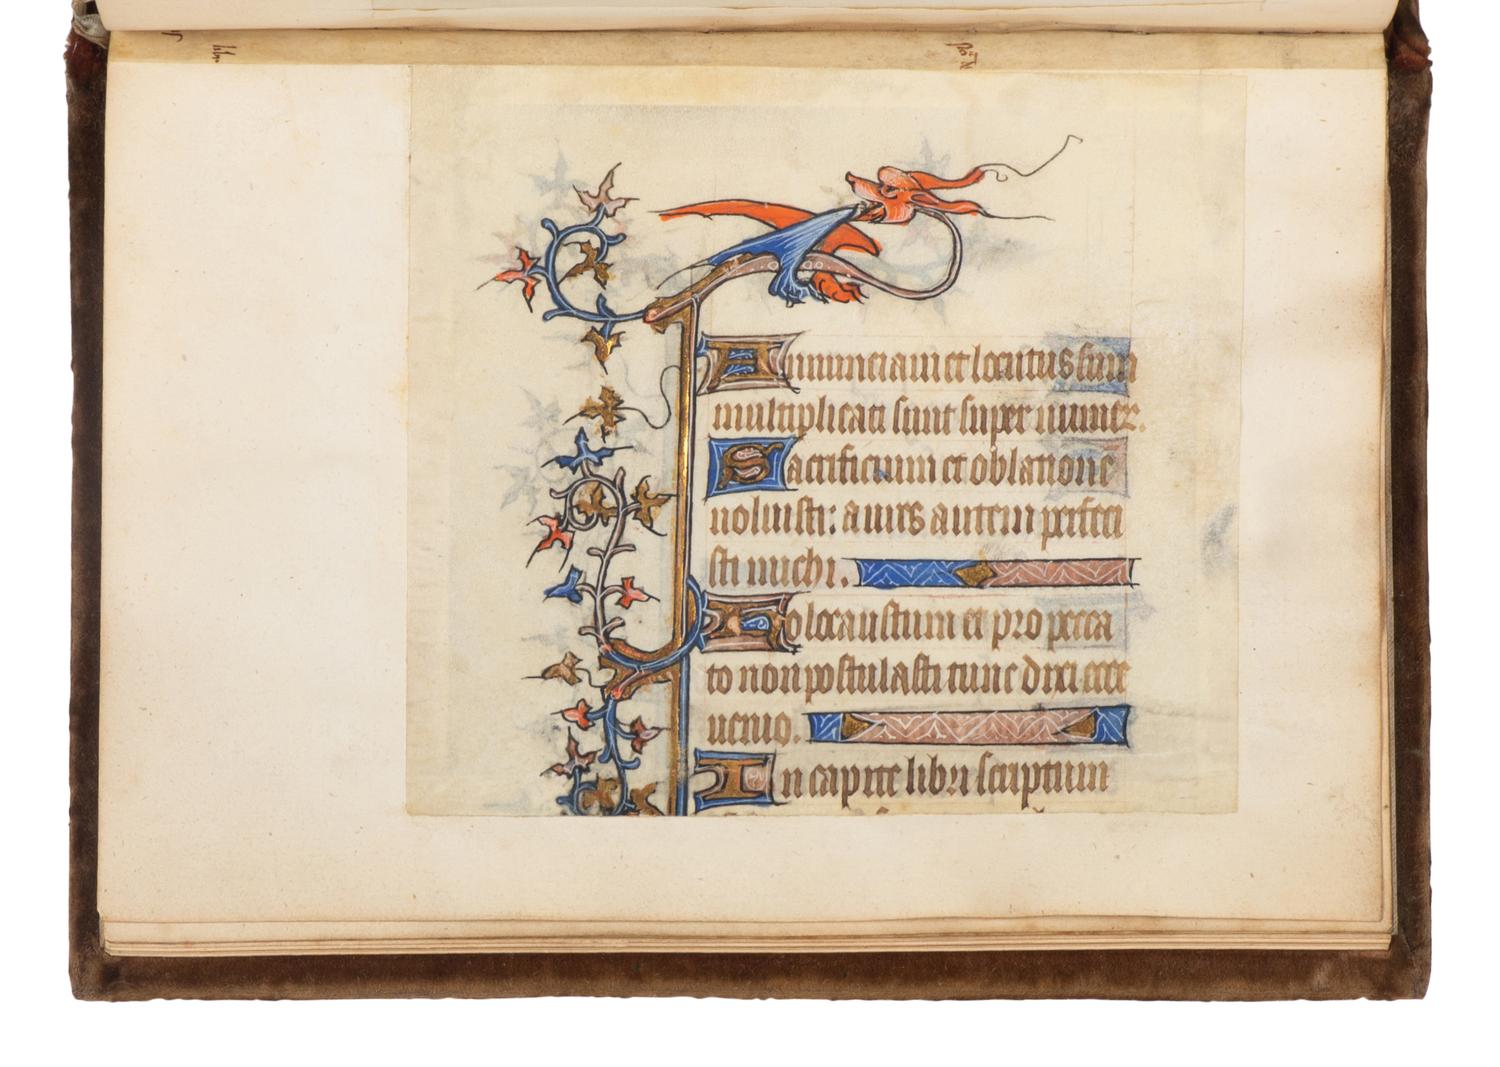 Annunciaui et locutus sum
multiplicati sunt super numer.
Sacrificium et oblatione
noluisti: aures autem perfeci
sti michi.
Holocaustum et pro pecca
to non postulasti tunc dixi ecce
uenio.
In capite libri scriptum